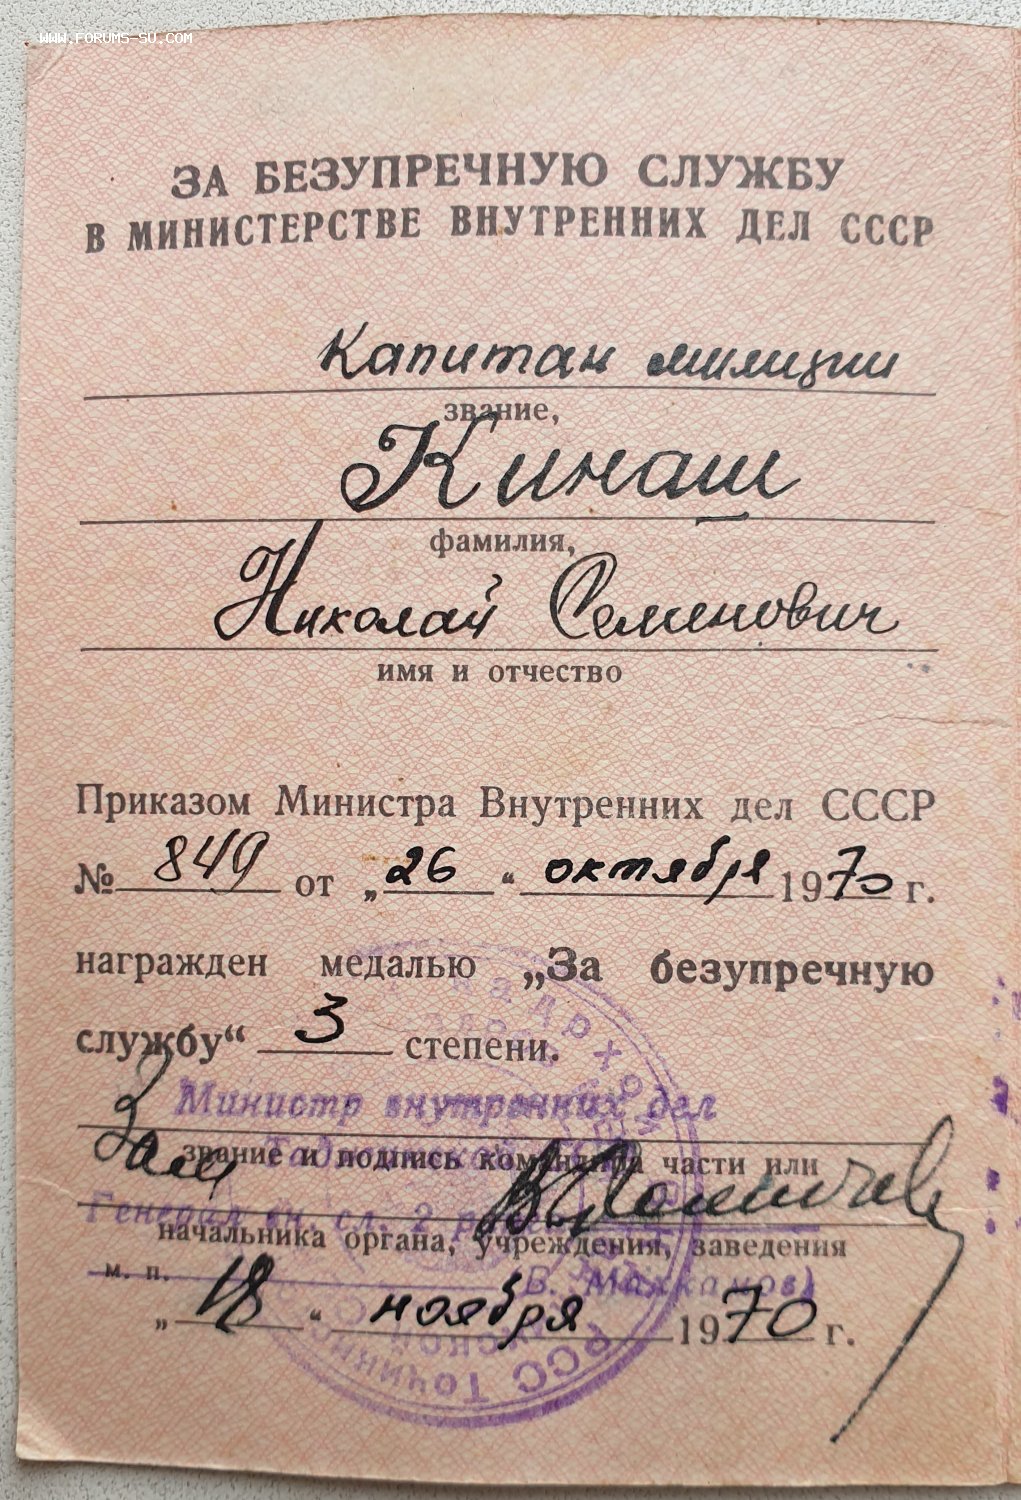 WWW.FORUMS-SU.COM
ЗА БЕЗУПРЕЧНУЮ СЛУЖБУ
В МИНИСТЕРСТВЕ ВНУТРЕННИХ ДЕЛ СССР
Капитан милиции
звание,
Кинаш
фамилия,
Николай Семенович
имя и отчество
Приказом Министра Внутренних дел СССР
№ 849 от „26“ октября 1970 г.
награжден медалью „За безупречную
службу“ 3 степени.
Министр внутренних дел
Зам
звание и подпись командира части или
Генерал вн. сл. 2 ранга
начальника органа, учреждения, заведения
м. п.
„18“ ноября 1970 г.